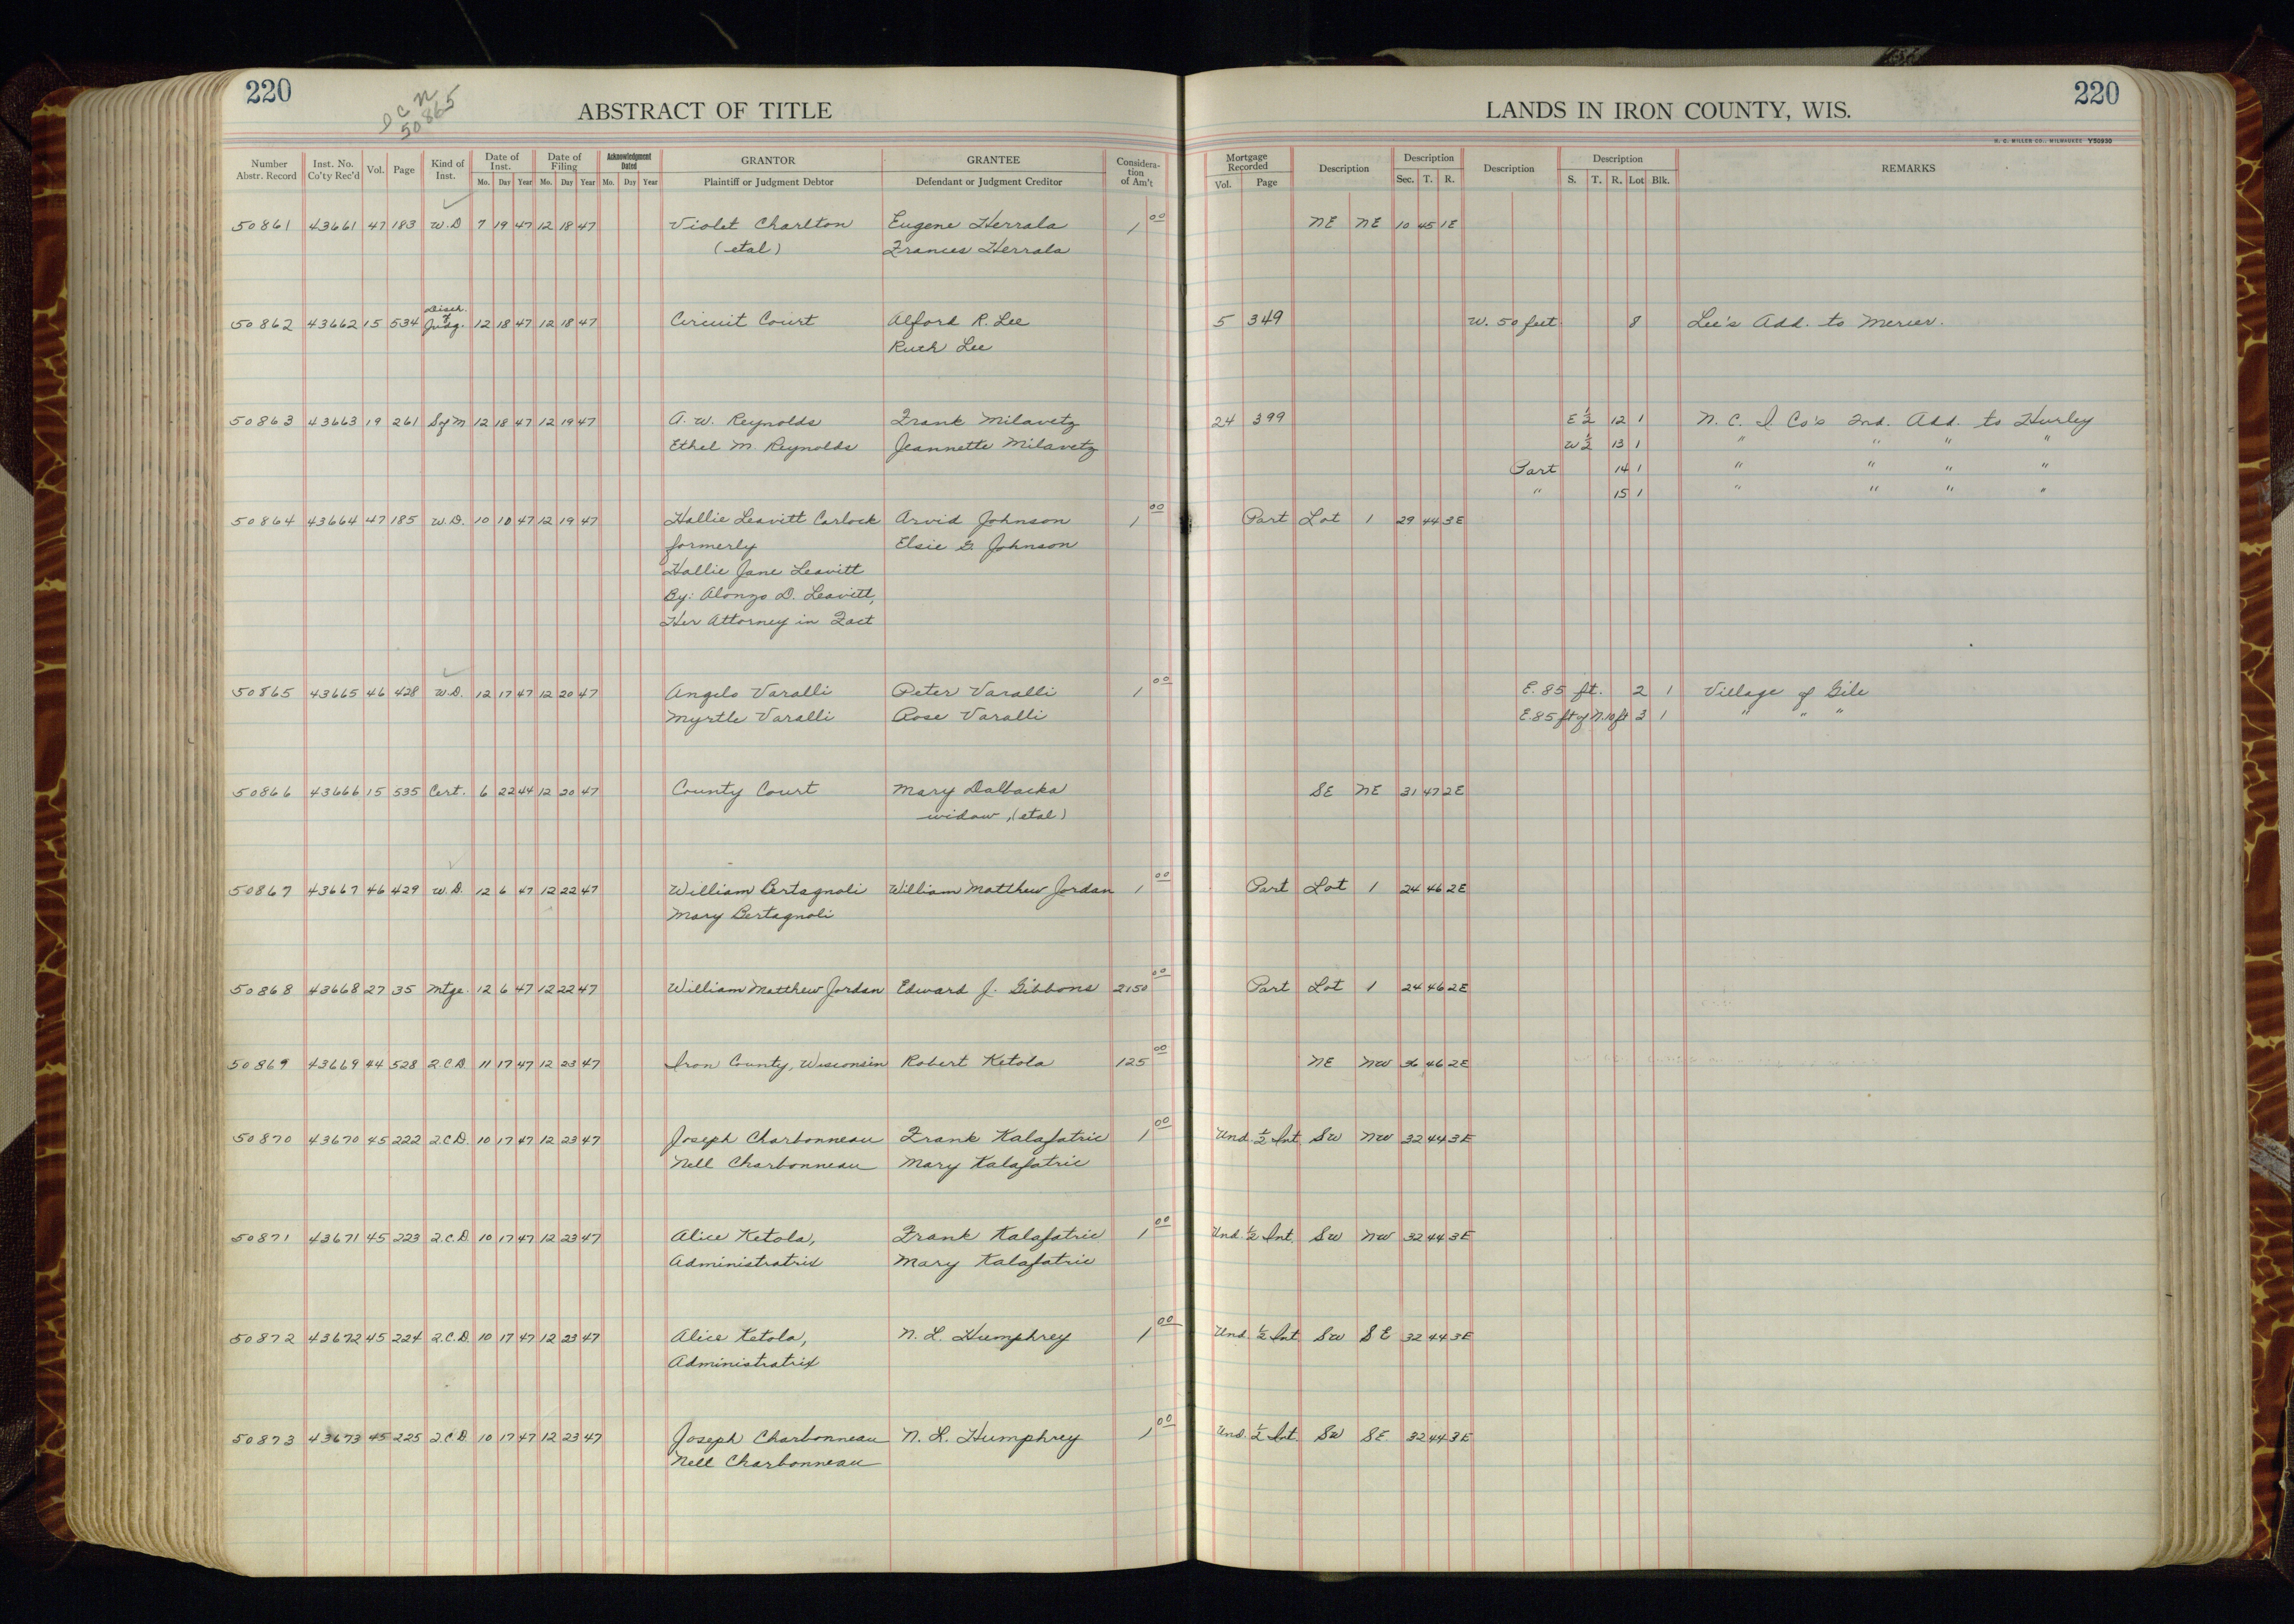 220
I C N
50865
ABSTRACT OF TITLE
LANDS IN IRON COUNTY, WIS.
220
H. C. MILLER CO., MILWAUKEE Y50930
Number Abstr. Record Inst. No. Co'ty Rec'd Vol. Page Kind of Inst. Date of Inst. Mo. Day Year Date of Filing Mo. Day Year Acknowledgment Dated Mo. Day Year GRANTOR Plaintiff or Judgment Debtor GRANTEE Defendant or Judgment Creditor Considera-tion of Am't Mortgage Recorded Vol. Page Description Description Sec. T. R. Description Description S. T. R. Lot Blk. REMARKS
50861 43661 47 183 W.D 7 19 47 12 18 47 Violet Charlton Eugene Herrala 1 00 NE NE 10 45 1E
(etal) Frances Herrala
50862 43662 15 534 Disch. of Judg. 12 18 47 12 18 47 Circuit Court Alford R. Lee 5 349 W. 50 feet 8 Lee's Add. to Mercer.
Ruth Lee
50863 43663 19 261 S of M 12 18 47 12 19 47 A. W. Reynolds Frank Milavetz 24 399 E 1/2 12 1 N. C. I Co's 2nd. Add. to Hurley
Ethel M. Reynolds Jeannette Milavetz W 1/2 13 1 " " " "
Part 14 1 " " " "
" 15 1 " " " "
50864 43664 47 185 W.D. 10 10 47 12 19 47 Hallie Leavitt Carlock Arvid Johnson 1 00 Part Lot 1 29 44 3E
formerly Elsie G. Johnson
Hallie Jane Leavitt
By: Alonzo D. Leavitt,
Her Attorney in Fact
50865 43665 46 428 W.D. 12 17 47 12 20 47 Angelo Varalli Peter Varalli 1 00 E. 85 ft. 2 1 Village of Gile
Myrtle Varalli Rose Varalli E. 85 ft of N. 10 ft 3 1 " " "
50866 43666 15 535 Cert. 6 22 44 12 20 47 County Court Mary Dalbacka SE NE 31 47 2E
widow, (etal)
50867 43667 46 429 W.D. 12 6 47 12 22 47 William Bertagnoli William Matthew Jordan 1 00 Part Lot 1 24 46 2E
Mary Bertagnoli
50868 43668 27 35 Mtge. 12 6 47 12 22 47 William Matthew Jordan Edward J. Gibbons 2150 00 Part Lot 1 24 46 2E
50869 43669 44 528 Q.C.D 11 17 47 12 23 47 Iron County, Wisconsin Robert Ketola 125 00 NE NW 36 46 2E
50870 43670 45 222 Q.C.D. 10 17 47 12 23 47 Joseph Charbonneau Frank Kalafatric 1 00 Und. 1/2 Int. SW NW 32 44 3E
Nell Charbonneau Mary Kalafatric
50871 43671 45 223 Q.C.D 10 17 47 12 23 47 Alice Ketola, Frank Kalafatric 1 00 Und. 1/2 Int. SW NW 32 44 3E
Administratrix Mary Kalafatric
50872 43672 45 224 Q.C.D 10 17 47 12 23 47 Alice Ketola, N. L. Humphrey 1 00 Und. 1/2 Int. SW SE 32 44 3E
Administratrix
50873 43673 45 225 Q.C.D 10 17 47 12 23 47 Joseph Charbonneau N. L. Humphrey 1 00 Und. 1/2 Int. SW SE 32 44 3E
Nell Charbonneau